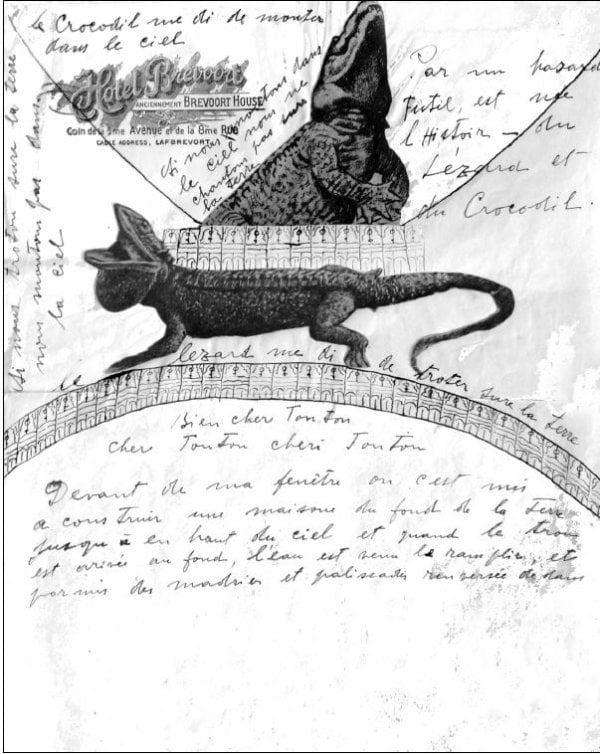 le Crocodil me di de monter
dans le ciel
Hotel Brevoort
ANCIENNEMENT BREVOORT HOUSE
Coin de la 5me Avenue et de la 8me RUE
CABLE ADDRESS, LAFBREVORT
Si nous montons dans
le ciel nous ne
chantons pas sur
la terre
Par un hazard
futil, est née
l'Histoir - du
Lézard et
du Crocodil.
Si nous troton sure la terre
nous montons pas dans
la ciel
le lezard me di de troter sure la terre
Bien cher Tonton
cher Tonton cheri Tonton
Devant de ma fenêtre on c'est mis
a construir une maisone du fond de la terre
jusqu'à en haut du ciel et quand le trou
est arivée au fond, l'eau est venu le ramplier, et
parmis des madrier et palissades renversée de dans